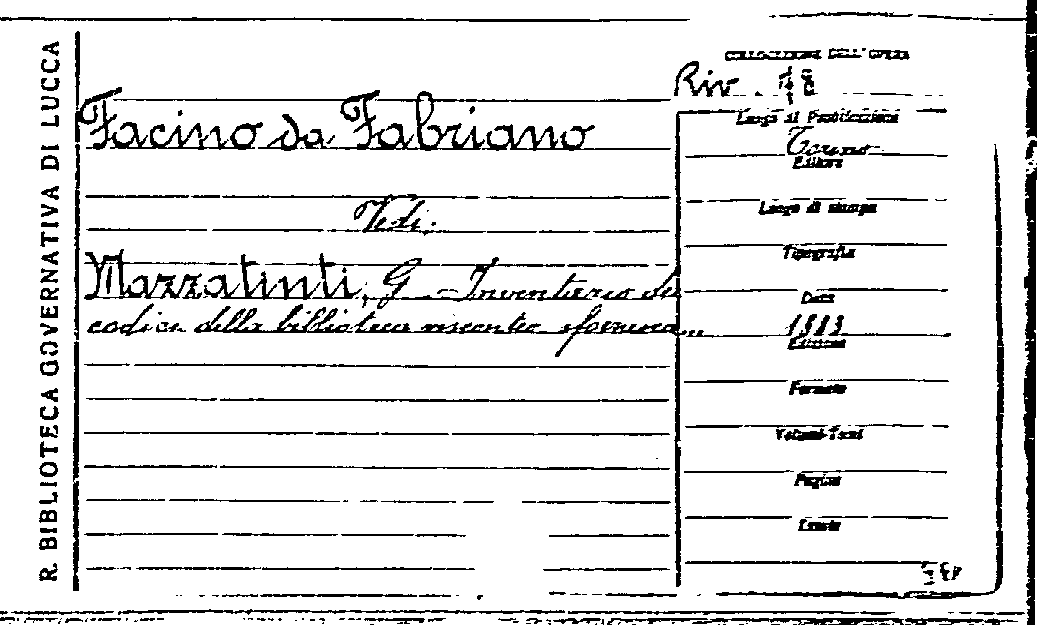 R. BIBLIOTECA GOVERNATIVA DI LUCCA
COLLOCAZIONE DELL'OPERA
Riv. 18
Facino da Fabriano
Vedi:
Mazzatinti, G. - Inventario dei
codici della biblioteca visconteo sforzesca...
Luogo di Pubblicazione
Torino
Editore
Luogo di stampa
Tipografia
Data
1883
Edizione
Formato
Volumi-Tomi
Pagine